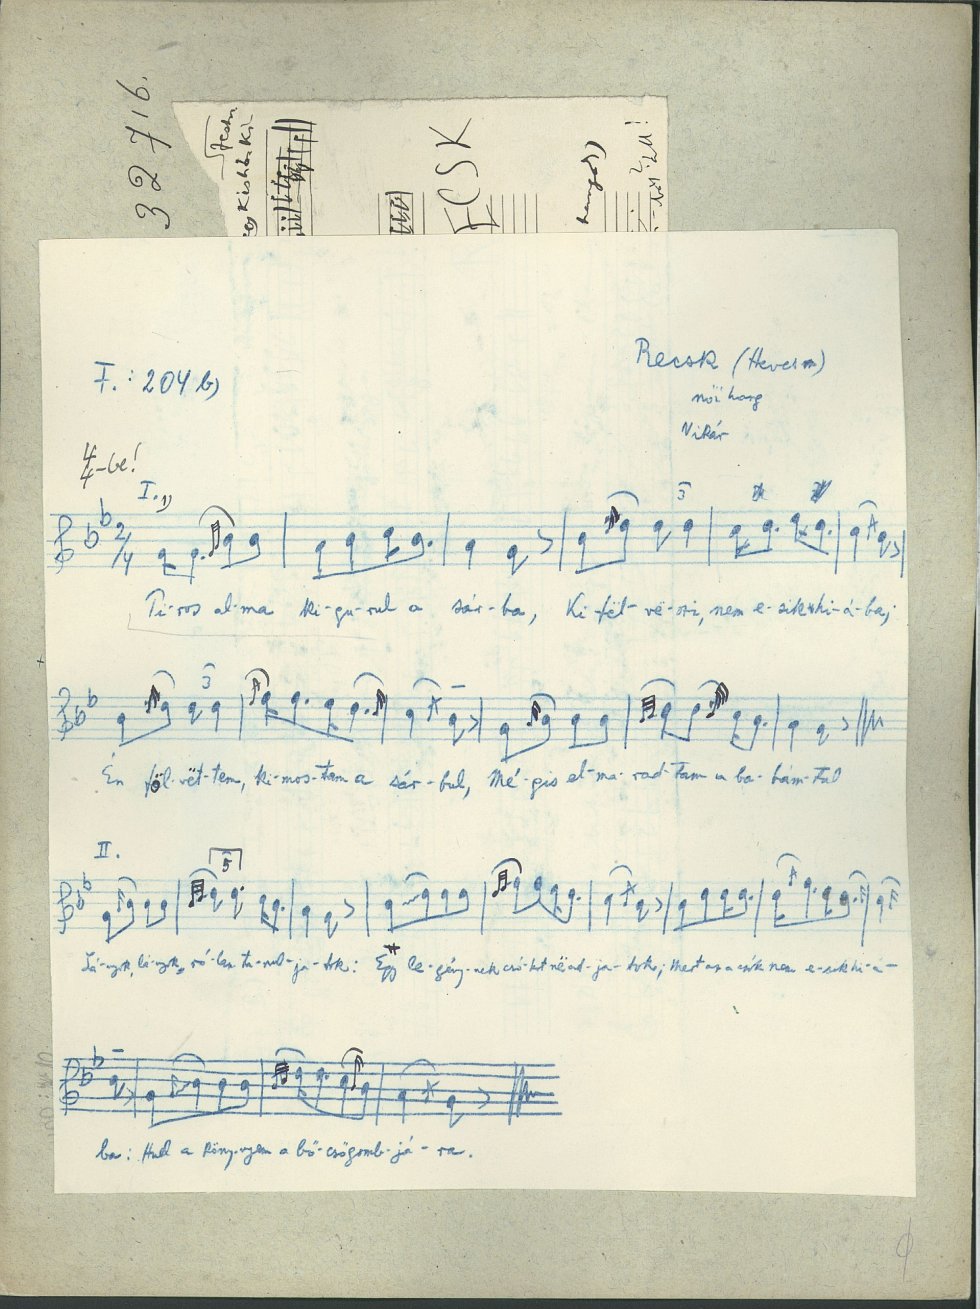 32716.
ECSK
F.: 204 b)
Recsk (Heves m)
női hang
Vikár
4/4-be!
I. 1)
2/4
3
Pi-ros al-ma ki-gu-rul a sár-ba,
Ki föl-vë-szi, nem e-sik
3
Én föl-vët-tem, ki-mos-tam a sár-bul, Mé-gis el-ma-rad-tam a ba-bám-tul
II.
5
Lá-nyok, lá-nyok, ró-lam ta-nul-ja-tok: Egy le-gény-nek csó-kot në ad-ja-tok; Mert az a csók nem
ba: Hull a köny-nyem a bö-csőgomb-já-ra.